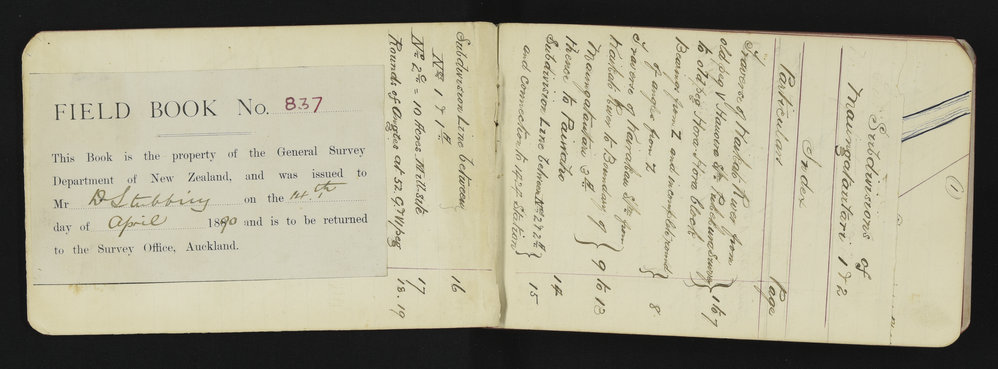 FIELD BOOK No. 837
This Book is the property of the General Survey
Department of New Zealand, and was issued to
Mr D Stubbing on the 14th
day of April 1890 and is to be returned
to the Survey Office, Auckland.
(1)
Subdivisions of
Maungatautari 1 & 2
Index
Particulars Page
Traverse of Waikato River from
old peg V Survey
to old peg Hora Hora block 1 to 7
Round from Z and incomplete round
of angles from Z 8
Traverse of from
Waikato River to Boundary of
Maungatautari 3A 9 to 13
thence to 14
Subdivision Line between Nos 2 & 2A
and connection to Station 15
Subdivision Line between
No 1 & 1A 16
No 2 = 10 Acres Mill-site 17
Round of Angles at 18.19